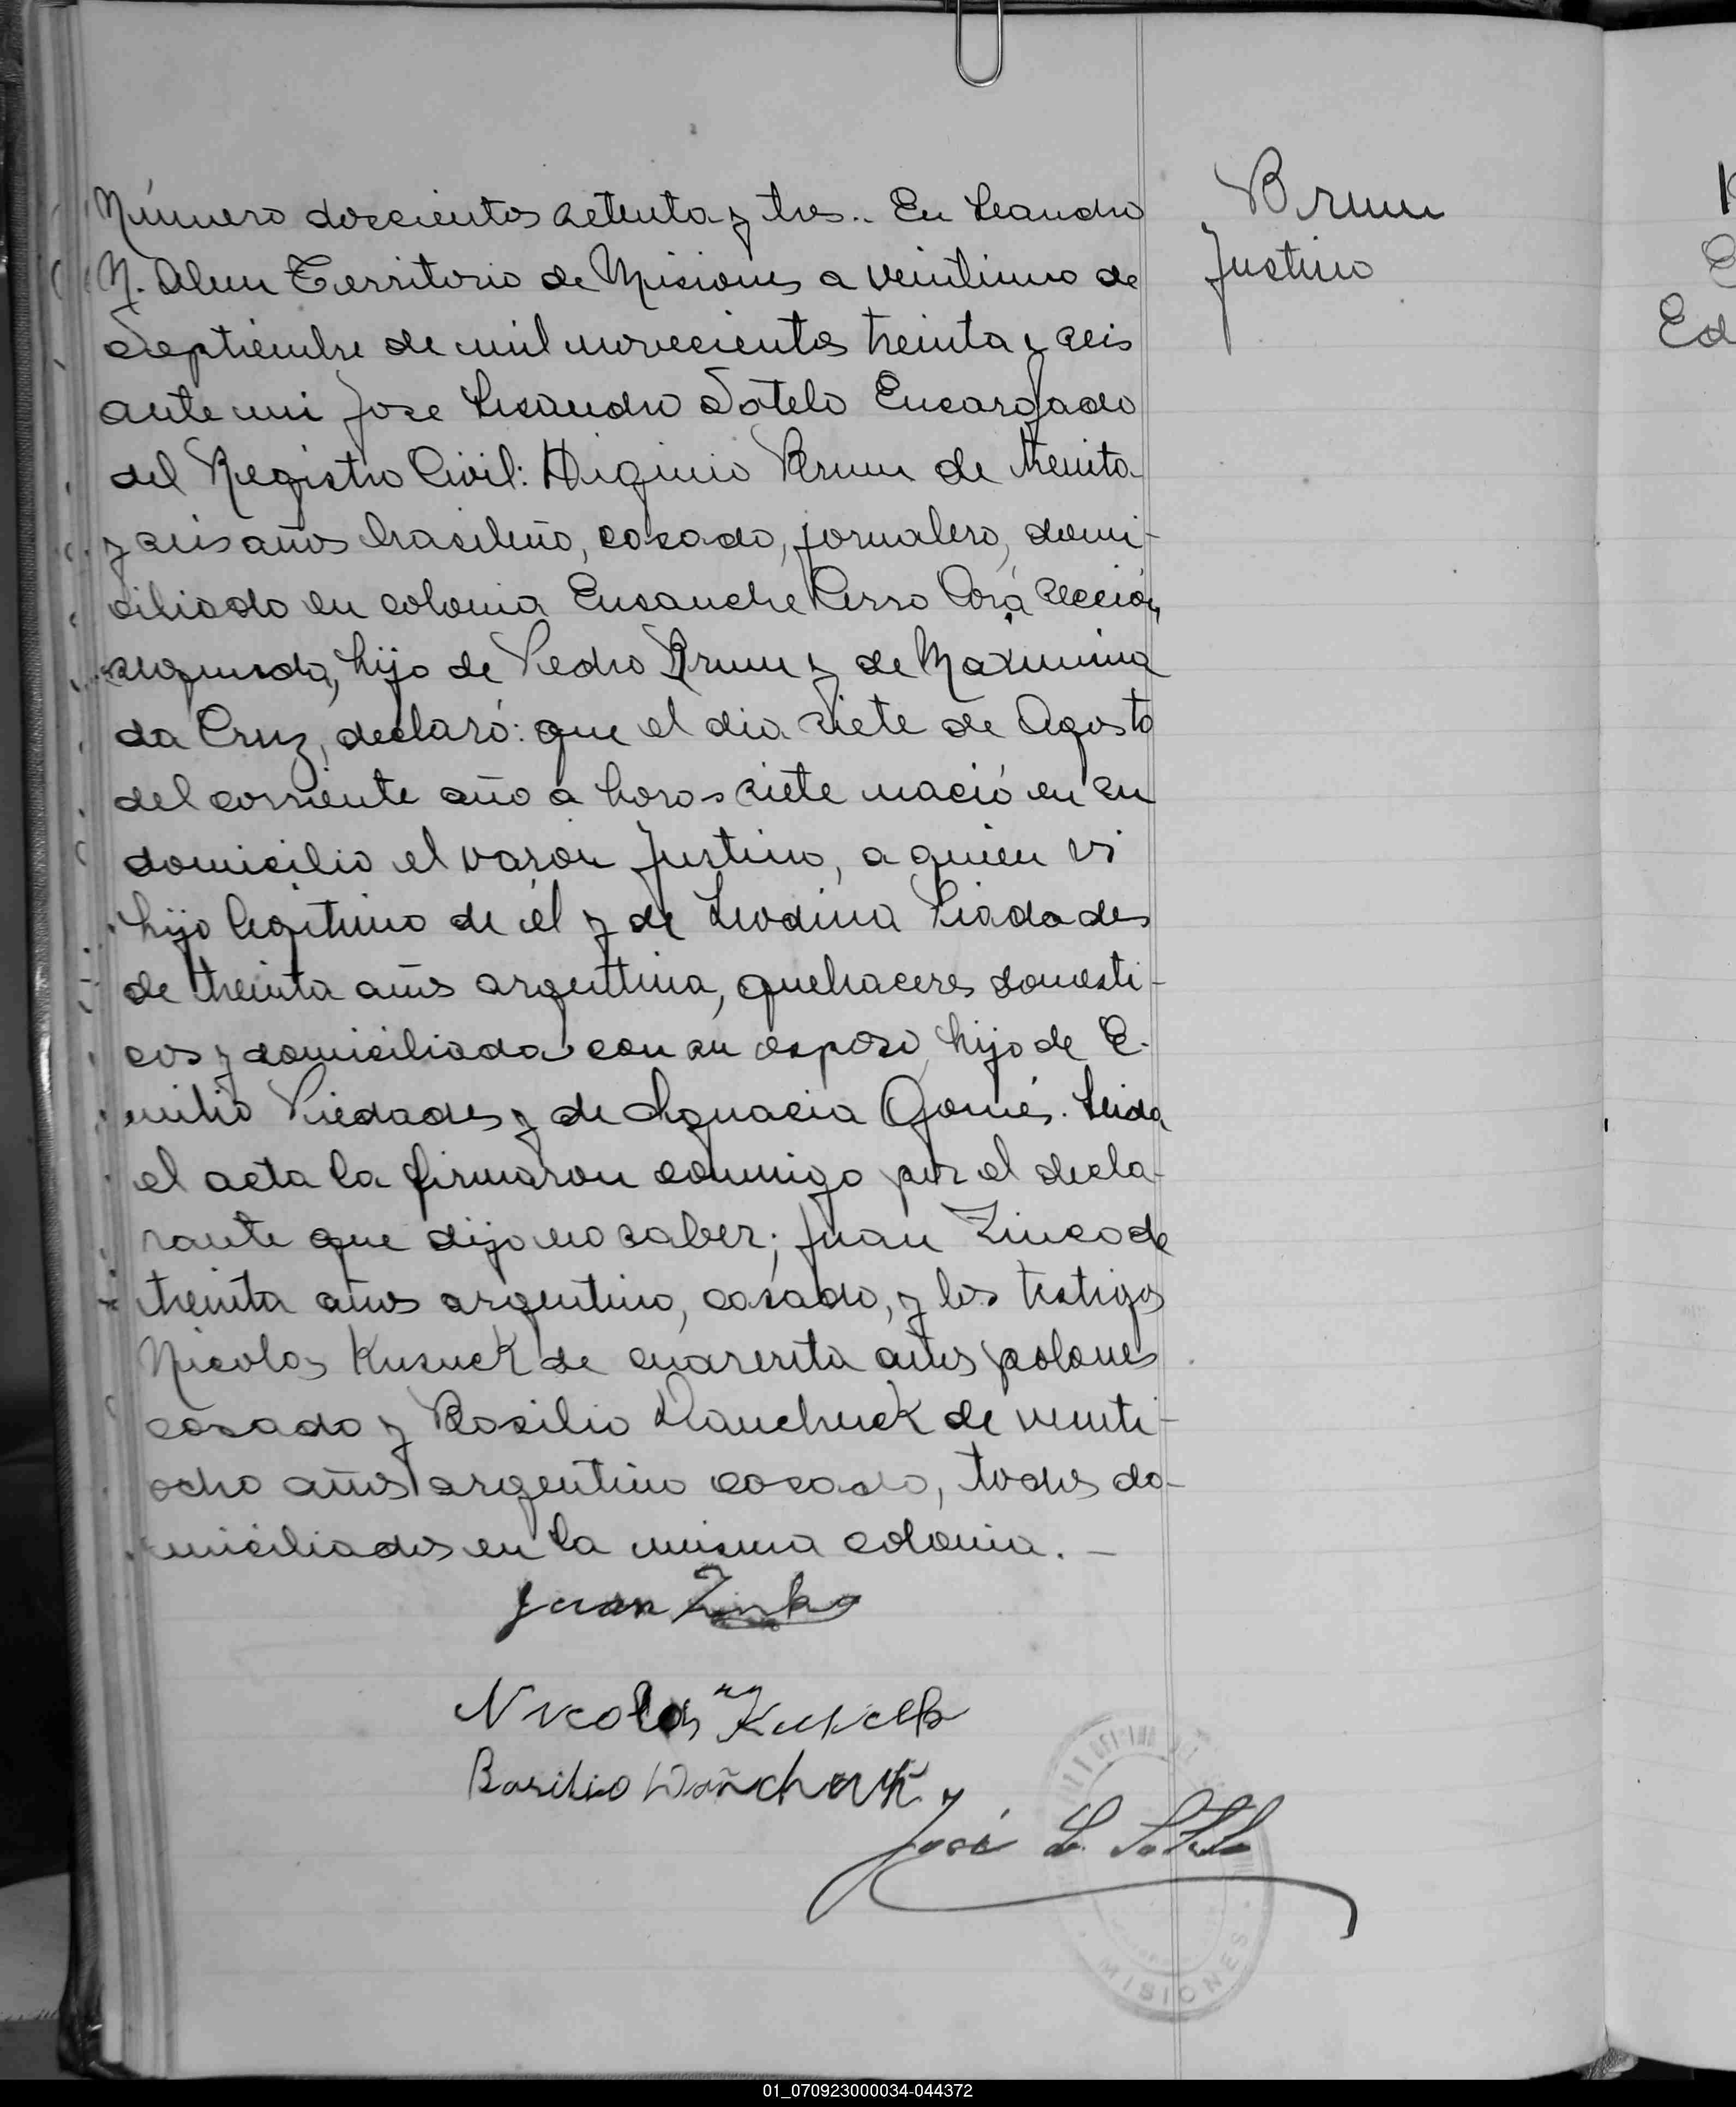 Número doscientos setenta y tres.. En Leandro
N. Alem Territorio de Misiones a veintiuno de
Septiembre de mil novecientos treinta y seis
ante mi Jose Lisandro Sotelo Encargado
del Registro Civil: Higinio Brum de treinta
y seis años brasileño, casado, jornalero, domi-
ciliado en colonia Ensanche Cerro Corá sección
segunda, hijo de Pedro Brum y de Maximina
da Cruz, declaró: que el dia siete de Agosto
del corriente año a horas siete nació en su
domicilio el varón Justino, a quien vi
hijo legitimo de él y de Leodina Piadades
de treinta años argentina, quehaceres domesti-
cos y domiciliada con su esposo, hijo de E-
milio Piedades y de Ignacia Gomés. Leida
el acta la firmaron conmigo por el decla-
rante que dijo no saber; Juan Zinco de
treinta años argentino, casado, y los testigos
Nicolas Kusuck de cuarenta años polones
casado y Basilio Wanchuck de veinti-
ocho años argentino casado, todos do-
miciliados en la misma colonia. -
Juan Zinko
Nicolas
Basilio
José L. Sotelo
MISIONES
Brum
Justino
Ed
01_070923000034-044372